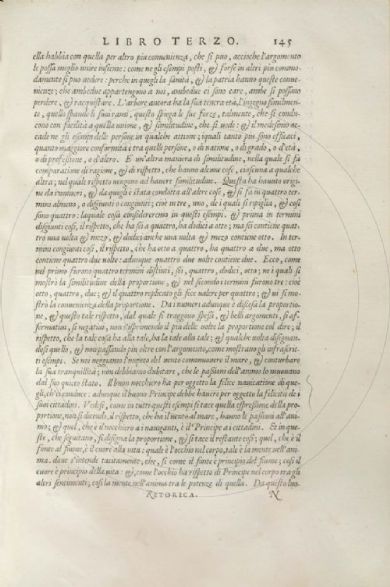 LIBRO TERZO. 145
ella habbia con quella per altro piu conuenienza, che si puo, accioche l'argomento
le possa meglio vnire insieme: come ne gli esempi posti, & forse in altri piu commo-
damente si puo vedere: perche in quegli la sanità, & la patria hanno queste conue-
nienze; che ambedue appartengono a noi, ambedue ci sono care, ambe si possono
perdere, & racquistare. L'arbore ancora ha la sua tenera età, l'ingegno similmen-
te, quello spande i suoi rami, questo spiega le sue forze, talmente, che si condu-
cono con facilità a quella natione, & similitudine, che si vede: & il medesimo ac-
cade ne gli esempi delle persone, in qualche attione; i quali tanto piu sono efficaci,
quanto maggiore conformità è tra quelle persone, o di natione, o di grado, o d'età,
o di professione, o d'altro. E vn'altra maniera di similitudine, nella quale si fa
comparatione di ragione, & di rispetto, che hanno alcune cose, ciascuna a qualche
altra; nel quali rispetto vengono ad hauere similitudine. Questa ha hauuto origi-
ne da i numeri, & da quegli è stata condotta all'altre cose, & si fa in quattro ter-
mini almeno, o disgiunti o congiunti; cioè in tre, vno, de i quali si ripiglia, & così
sono quattro: laquale cosa considereremo in questi esempi. & prima in termini
disgiunti così, il rispetto, che ha sei a quattro, ha dodici a otto; ma sei contiene quat-
tro vna volta & mezo, & dodici anche vna volta & mezo contiene otto. In ter-
mini congiunti così, il rispetto, che ha otto a quattro, ha quattro a due, ma otto
contiene quattro due volte: adunque quattro due volte contiene due. Ecco, come
nel primo furono quattro termini distinti, sei, quattro, dodici, otto; ne i quali si
mostrò la similitudine della proportione, & nel secondo termini furono tre: cioè
otto, quattro, due; & il quattro replicato gli fece valere per quattro; & vi si mo-
strò la conuenienza della proportione. Da i numeri adunque è discesa la proportio-
ne, & questo tale rispetto, dal quale si traggono spessi, & belli argomenti, si af-
fermatiui, si negatiui, non s'esprimendo il piu delle volte la proportione col dire; il
rispetto, che la tal cosa ha alla tale, ha la tale alla tale; & qualche volta disegnan-
dosi quello, & non passando piu oltre con l'argomento, come mostrano gl'infrascritti
esempi. Se noi neghiamo l'impeto del vento commouere il mare, & conturbare
la sua tranquillità; non debbiamo dubitare, che le passioni dell'animo lo muouano
dal suo quieto stato. Il buon nocchero ha per oggetto la felice nauicatione di que-
gli, ch'ei conduce: adunque il buon Principe debbe hauere per oggetto la felicità de i
suoi cittadini. Vedesi, come in tutti questi esempi si tace quella espressione della pro-
portione, non si dicendo, il rispetto, che ha il vento al mare, hanno le passioni all'ani-
mo; & quel, che è il nocchero a i nauiganti, è il Principe a i cittadini. Et in que-
ste, che seguitano, si disegna la proportione, & si tace il restante così; quel, che è il
fonte al fiume, è il cuore alla vita: quale è l'occhio nel corpo, tale è la mente nell'ani-
ma. doue s'intende tacitamente, che, si come il fonte è principio del fiume; così il
cuore è principio della vita: & come l'occhio ha rispetto di Principe nel corpo tra gli
altri sentimenti; così la mente, nell'animo tra le potenze di quello. Da questo luo-
RETORICA. N